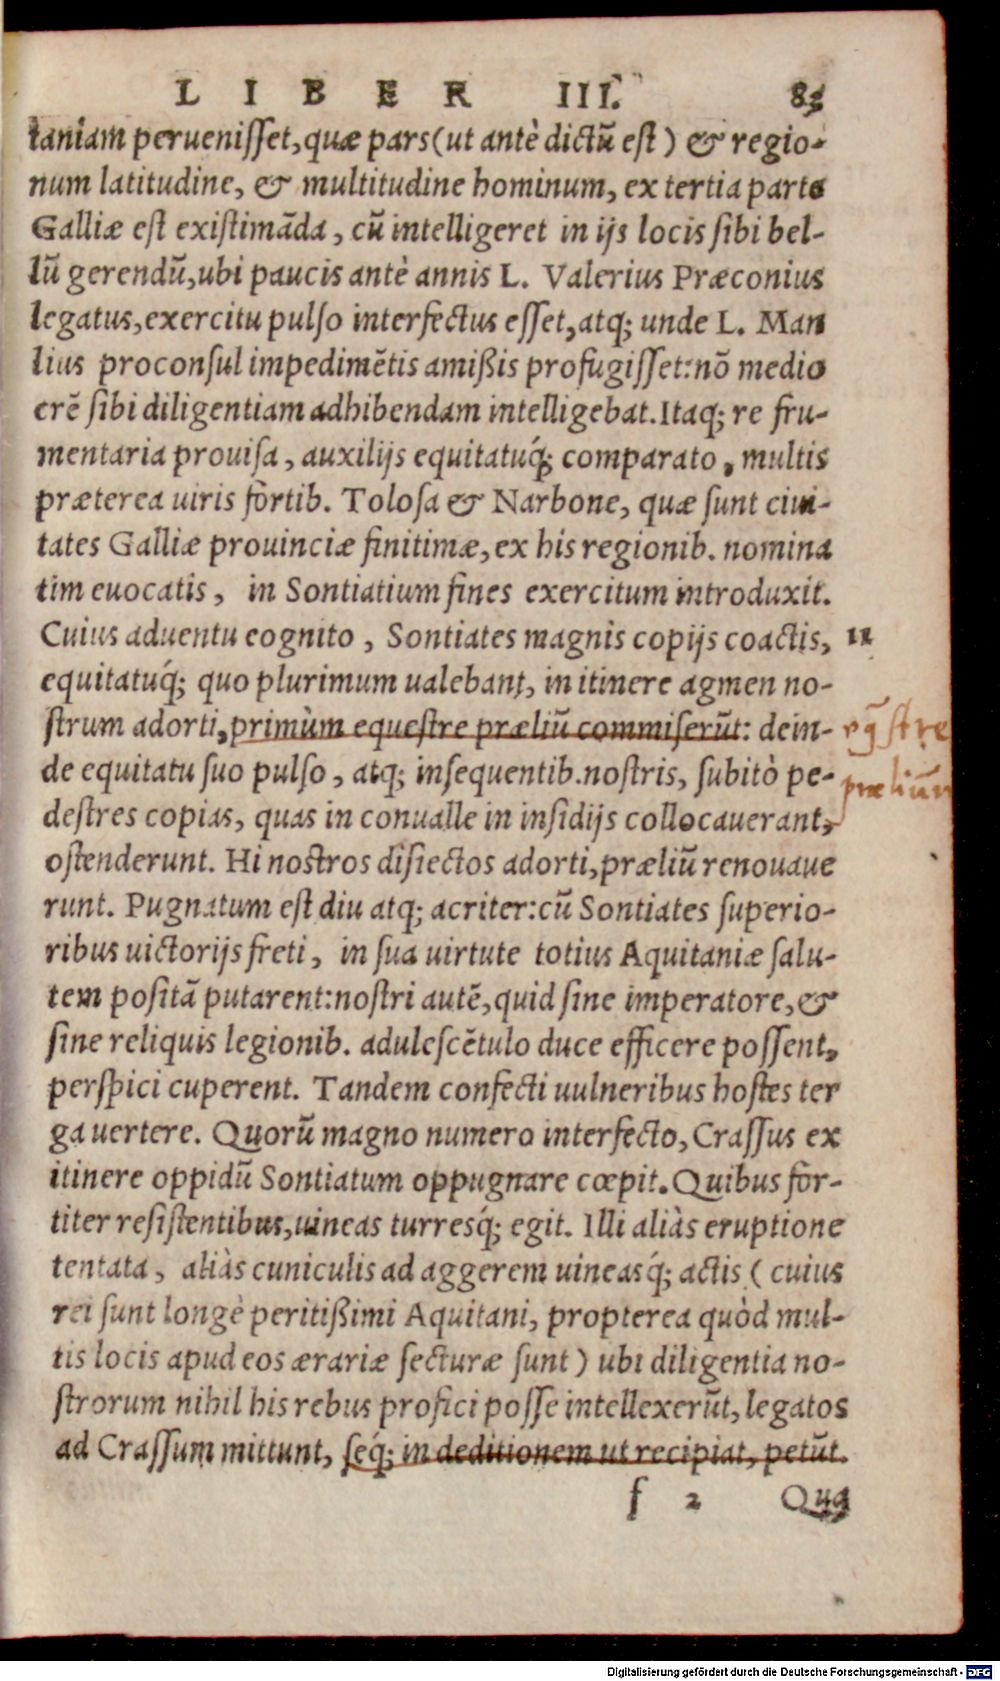 LIBER III. 83
taniam peruenisset, quæ pars (ut antè dictũ est) & regio-
num latitudine, & multitudine hominum, ex tertia parte
Galliæ est existimãda, cũ intelligeret in ijs locis sibi bel-
lũ gerendũ, ubi paucis antè annis L. Valerius Præconius
legatus, exercitu pulso interfectus esset, atq; unde L. Man
lius proconsul impedimẽtis amißis profugisset: nõ medio
crẽ sibi diligentiam adhibendam intelligebat. Itaq; re fru-
mentaria prouisa, auxilijs equitatuq́; comparato, multis
præterea uiris fortib. Tolosa & Narbone, quæ sunt ciui-
tates Galliæ prouinciæ finitimæ, ex his regionib. nomina
tim euocatis, in Sontiatium fines exercitum introduxit.
Cuius aduentu cognito, Sontiates magnis copijs coactis, 12
equitatuq́; quo plurimum ualebant, in itinere agmen no-
strum adorti, primùm equestre præliũ commiserũt: dein-
de equitatu suo pulso, atq; insequentib. nostris, subitò pe-
destres copias, quas in conualle in insidijs collocauerant,
ostenderunt. Hi nostros disiectos adorti, præliũ renouaue
runt. Pugnatum est diu atq; acriter: cũ Sontiates superio-
ribus uictorijs freti, in sua uirtute totius Aquitaniæ salu-
tem positã putarent: nostri autẽ, quid sine imperatore, &
sine reliquis legionib. adulescẽtulo duce efficere possent,
perspici cuperent. Tandem confecti uulneribus hostes ter
ga uertere. Quorũ magno numero interfecto, Crassus ex
itinere oppidũ Sontiatum oppugnare cœpit. Quibus for-
titer resistentibus, uineas turresq́; egit. Illi aliàs eruptione
tentata, aliàs cuniculis ad aggerem uineasq́; actis (cuius
rei sunt longè peritißimi Aquitani, propterea quòd mul-
tis locis apud eos ærariæ secturæ sunt) ubi diligentia no-
strorum nihil his rebus profici posse intellexerũt, legatos
ad Crassum mittunt, seq́; in deditionem ut recipiat, petũt.
f 2 Qua
præliũm
Digitalisierung gefördert durch die Deutsche Forschungsgemeinschaft - DFG